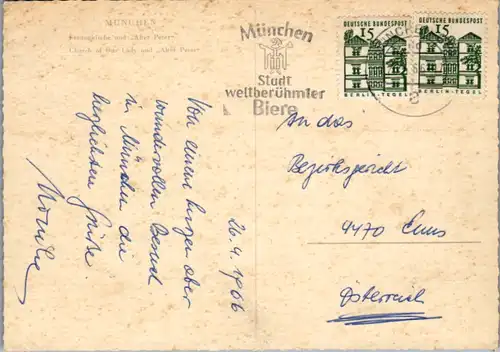 MÜNCHEN
Frauenkirche und „Alter Peter"
Church of Our Lady and „Alter Peter"
München
Stadt
weltberühmter
Biere
DEUTSCHE BUNDESPOST
15
BERLIN-TEGEL
DEUTSCHE BUNDESPOST
15
BERLIN-TEGEL
26.4.1966
Von einem kurzen aber
wundervollen Besuch
in München die
herzlichsten Grüße
An das
Bezirksgericht
4470 Enns
Österreich